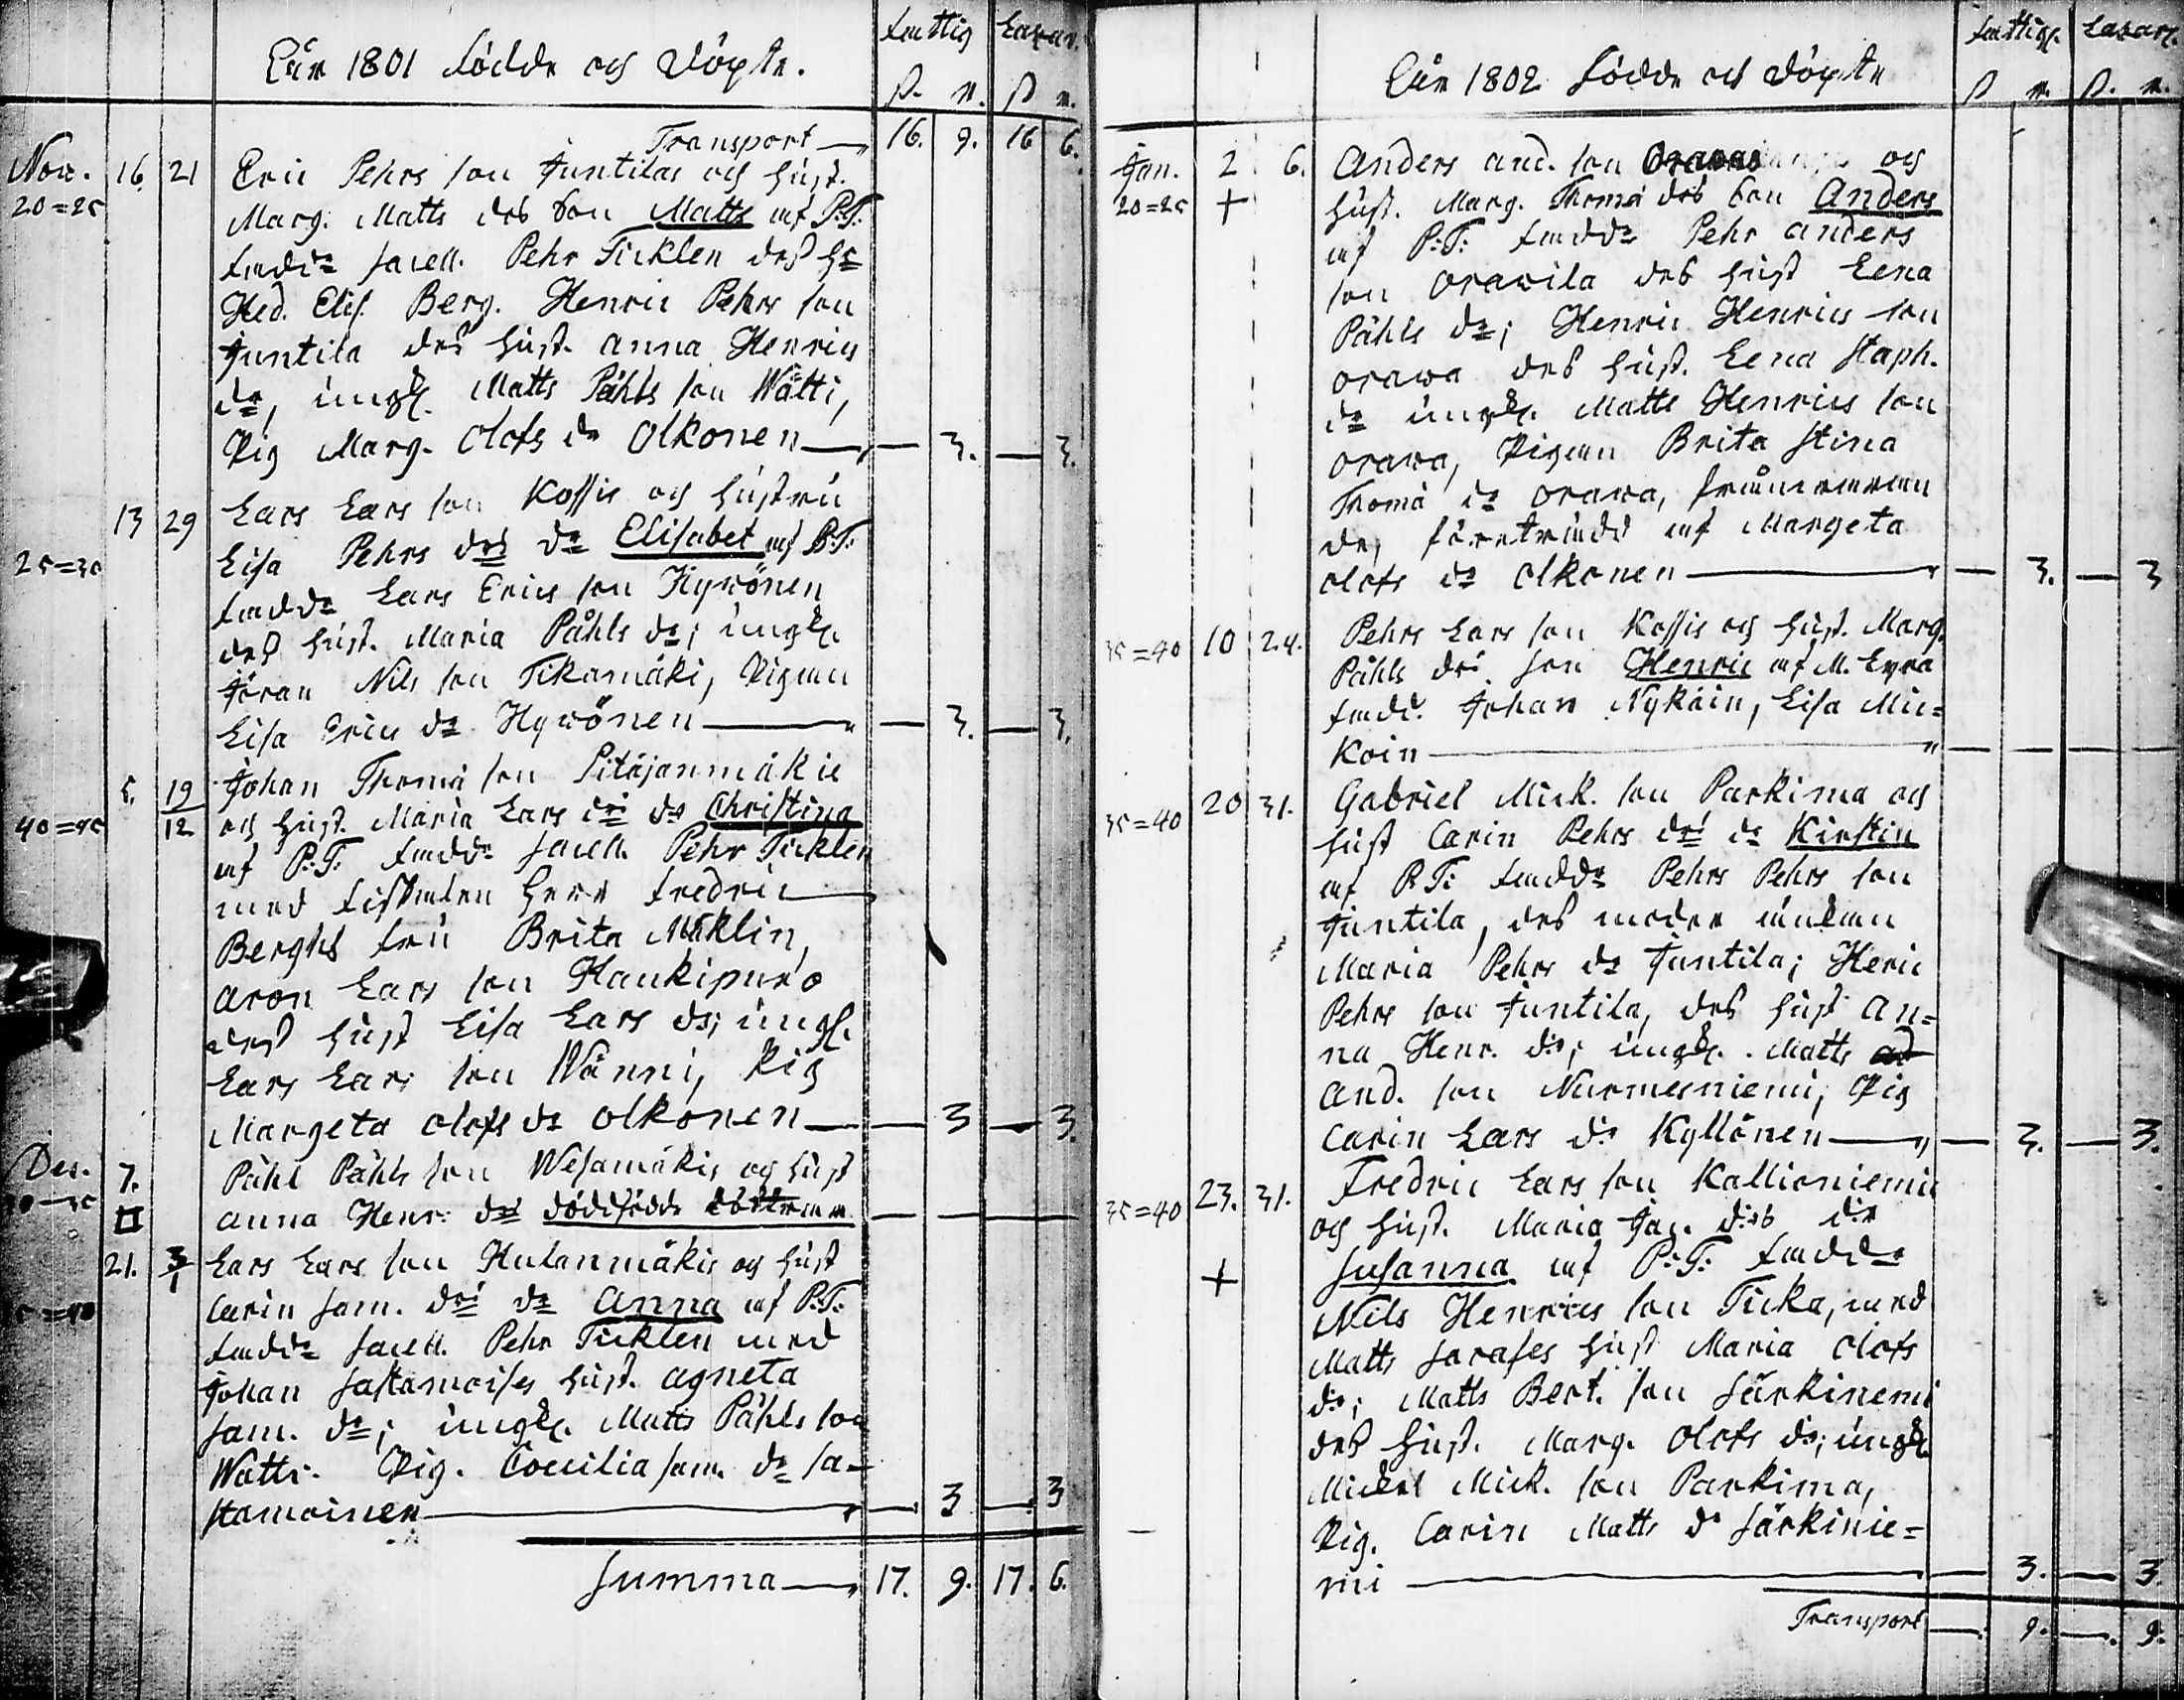 Åår 1801 Födde och Döpte.
Fattig Lazar.
ß. r. ß r.
Transport 16. 9. 16 6.
Nov. 16. 21 Eric Pehrs son Juntilas och hust.
20=25 Marg. Matts dr son Matts af P:T:
Fadd: Sacell. Pehr Ticklen dess hr
Hed. Elis. Berg. Henric Pehrs son
Juntila des hust. Anna Henrics
dr, ungk. Matts Påhls son Wätti,
Pig Marg. Olofs dr Olkonen — 3. — 3.
13 29 Lars Lars son Kossis och hustru
Lisa Pehrs drs dr Elisabet af P:T:
25=30 Fadd: Lars Erics son Hywönen
des hust. Maria Påhls dr; ungk.
Jöran Nils son Tikamäki, Pigan
Lisa Erics dr Hywönen — 3. — 3.
5. 19/12 Johan Thomæ son Pitäjänmäkis
40=45 och hust. Maria Lars drs dr Christina
af P:T: Fadd: Sacell. Pehr Ticklen
med Herr Fredric
Berghs fru Brita Mäklin,
Aron Lars son Haukipuro
des hust Lisa Lars dr; ungk.
Lars Lars son Wänni, Pig
Margeta Olofs dr Olkonen — 3 — 3.
Dec. 7. Påhl Påhls son Wesamäkis och hust
Anna Henr: drs dödfödde — —
21. 3/1 Lars Lars son Hutanmäkis och hust
Carin Sam. drs dr Anna af P:T:
Fadd: Sacell. Pehr Ticklen med
Johan Sastamoises hust. Agneta
Sam. dr; ungk. Matts Påhls son
Wätti. Pig. Coecilia Sam. dr Sa-
stamoinen — 3 — 3
Summa 17. 9. 17. 6.
Åår 1802 Födde och Döpte
Fattigk. Lazar.
ß r. ß. r.
Jan. 2 6. Anders And. son och
20=25 + hust. Marg. Thomæ drs son Anders
af P:T: Fadd: Pehr Anders
son Orawila des hust Lena
Påhls dr; Henric Henrics son
Orawa des hust. Lena Staph.
dr ungk. Matts Henrics son
Orawa, Pigan Brita Stina
Thomæ dr Orawa, frånwaran
de, företrädd af Margeta
Olofs dr Olkonen — 3. — 3
35=40 10 24. Pehrs Lars son Kossis och hust. Marg.
Påhls drs son Henric af M. Eyra
Fadd. Johan Nykäin, Lisa Mic=
koin — —
35=40 20 31. Gabriel Mick. son Parkima och
hust Carin Pehrs drs dr Kirstin
af P:T: Fadd: Pehrs Pehrs son
Juntila, des moder änkan
Maria Pehrs dr Juntila; Heric
Pehrs son Juntila, des hust An=
na Henr. dr; ungk. Matts
And. son Nurmesniemi, Pig
Carin Lars dr Kyllönen — 3. — 3.
35=40 23. 31. Fredric Lars son Kallioniemis
och hust. Maria Jac. drs dr
+ Susanna af P:T: Fadd:
Nils Henrics son Ticka, med
Matts Sarases hust Maria Olofs
dr; Matts Bert. son Särkinemi
des hust. Marg. Olofs dr; ungk
Mickel Mick. son Parkima,
Pig. Carin Matts dr Särkinie=
mi — 3. — 3.
Transport — 9. — 9.